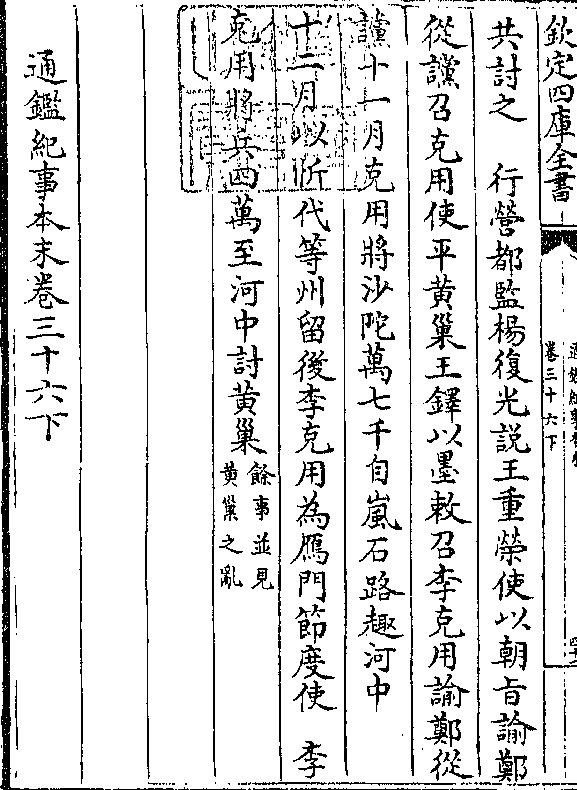 欽定四庫全書
卷三十六下
共討之　行營都監楊復光説王重榮使以朝旨諭鄭
從讜召克用使平黄巢王鐸以墨敕召李克用諭鄭從
讜十一月克用將沙陀萬七千自嵐石路趣河中
十二月以忻代等州留後李克用為鴈門節度使　李
克用將兵四萬至河中討黄巢餘事並見
黄巢之亂
通鑑紀事本末卷三十六下